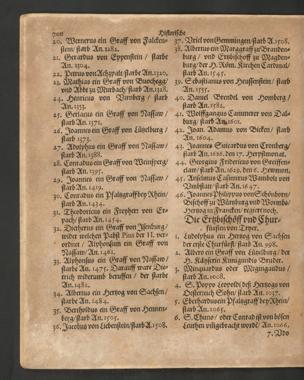 700 Historische
20. Wernerus ein Graff von Falcken-
stein/ starb An. 1284.
21. Gerardus von Eppenstein/ starbe
An. 1304.
22. Petrus von Achzpalt starbe An. 1320.
23. Mathias ein Graff von Buochegg/
und Abbt zu Murbach/ starb An. 1328.
24. Henricus von Virnberg/ starb
An. 1353.
25. Gerlacus ein Graff von Nassaw/
starb An. 1371.
26. Joannes ein Graff von Lützelburg/
starb 1373.
27. Adolphus ein Graff von Nassaw/
starb An. 1388.
28. Conradus ein Graff von Weinsperg/
starb An. 1395.
29. Joannes ein Graff von Nassaw/
starb An. 1419.
30. Conradus ein Pfaltzgraff bey Rhein/
starb An. 1434.
31. Theodoricus ein Freyherr von Er-
pach/ starb An. 1454.
32. Dietherus ein Graff von Isenburg/
wider welchen Pabst Pius der II. ver-
ordnet/ Alphonsum ein Graff von
Nassaw/ An. 1461.
33. Alphonsus ein Graff von Nassaw/
starbe An. 1475. Darauff ward Die-
trich widerumb beruffen/ der starbe
An. 1482.
34. Albertus ein Hertzog von Sachsen/
starbe An. 1484.
35. Bertholdus ein Graff von Hennen-
berg/ starb An. 1505.
36. Jacobus von Liebenstein/ starb A. 1508.
37. Vriel von Gemmingen/ starb A. 1508.
38. Albertus ein Marggraff zu Branden-
burg/ und Ertzbischoff zu Magden-
burg/ der H. Röm. Kirchen Cardinal/
starb An. 1545.
39. Sebastianus von Heusenstein/ starb
An. 1555.
40. Daniel Brendel von Homberg/
starb An. 1582.
41. Wolffgangus Cammerer von Dal-
burg/ starb An. 1601.
42. Joan. Adamus von Bicken/ starb
An. 1604.
43. Joannes Suicardus von Cronberg/
starb An. 1626.
44. Georgius Fridericus von Greiffen-
clau/ starb An. 1629. den 6.
45. Anselmus Casimirus Wambolt von
Vmbstatt/ starb An. 1647.
46. Joannes Philippus von Schönborn/
Bischoff zu Würtzburg und Wormbs/
Hertzog zu Francken/ regiert noch.
Die Ertzbischöff und Chur-
fürsten von Trier.
1. Ludolphus ein Hertzog von Sachsen
der erste Churfürst/ starb An. 998.
2. Albert ein Graff von Lützelburg/ der
H. Käyserin Kunigundis Bruder.
3. Minquardus oder Mizigandus/
starb An. 1008.
4. S. Poppo Leopold deß Hertzogs von
Oesterreich Sohn/ starb An. 1037.
5. Eberhardus ein Pfaltzgraff bey Rhein/
starb An. 1065.
6. S. Chuno/ oder Conrad ist von bösen
Leuthen vmbgebracht worden/ An. 1066.
7. Vdo